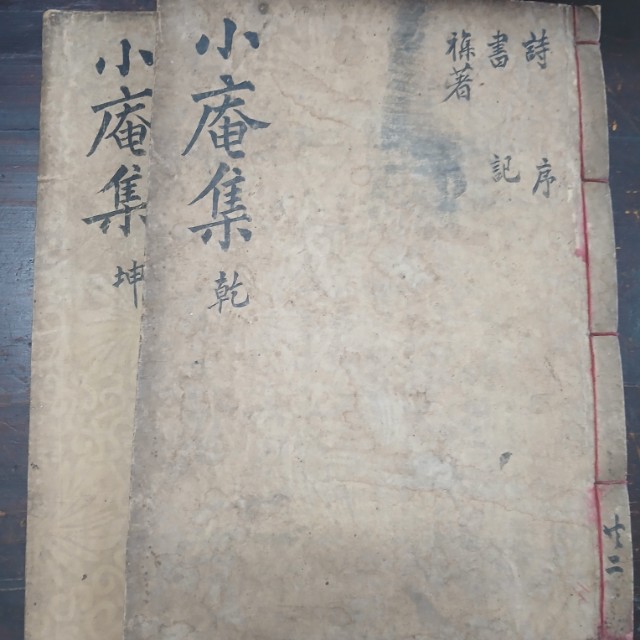 詩 序
書 記
雜著
小庵集 乾
小庵集 坤
廿二